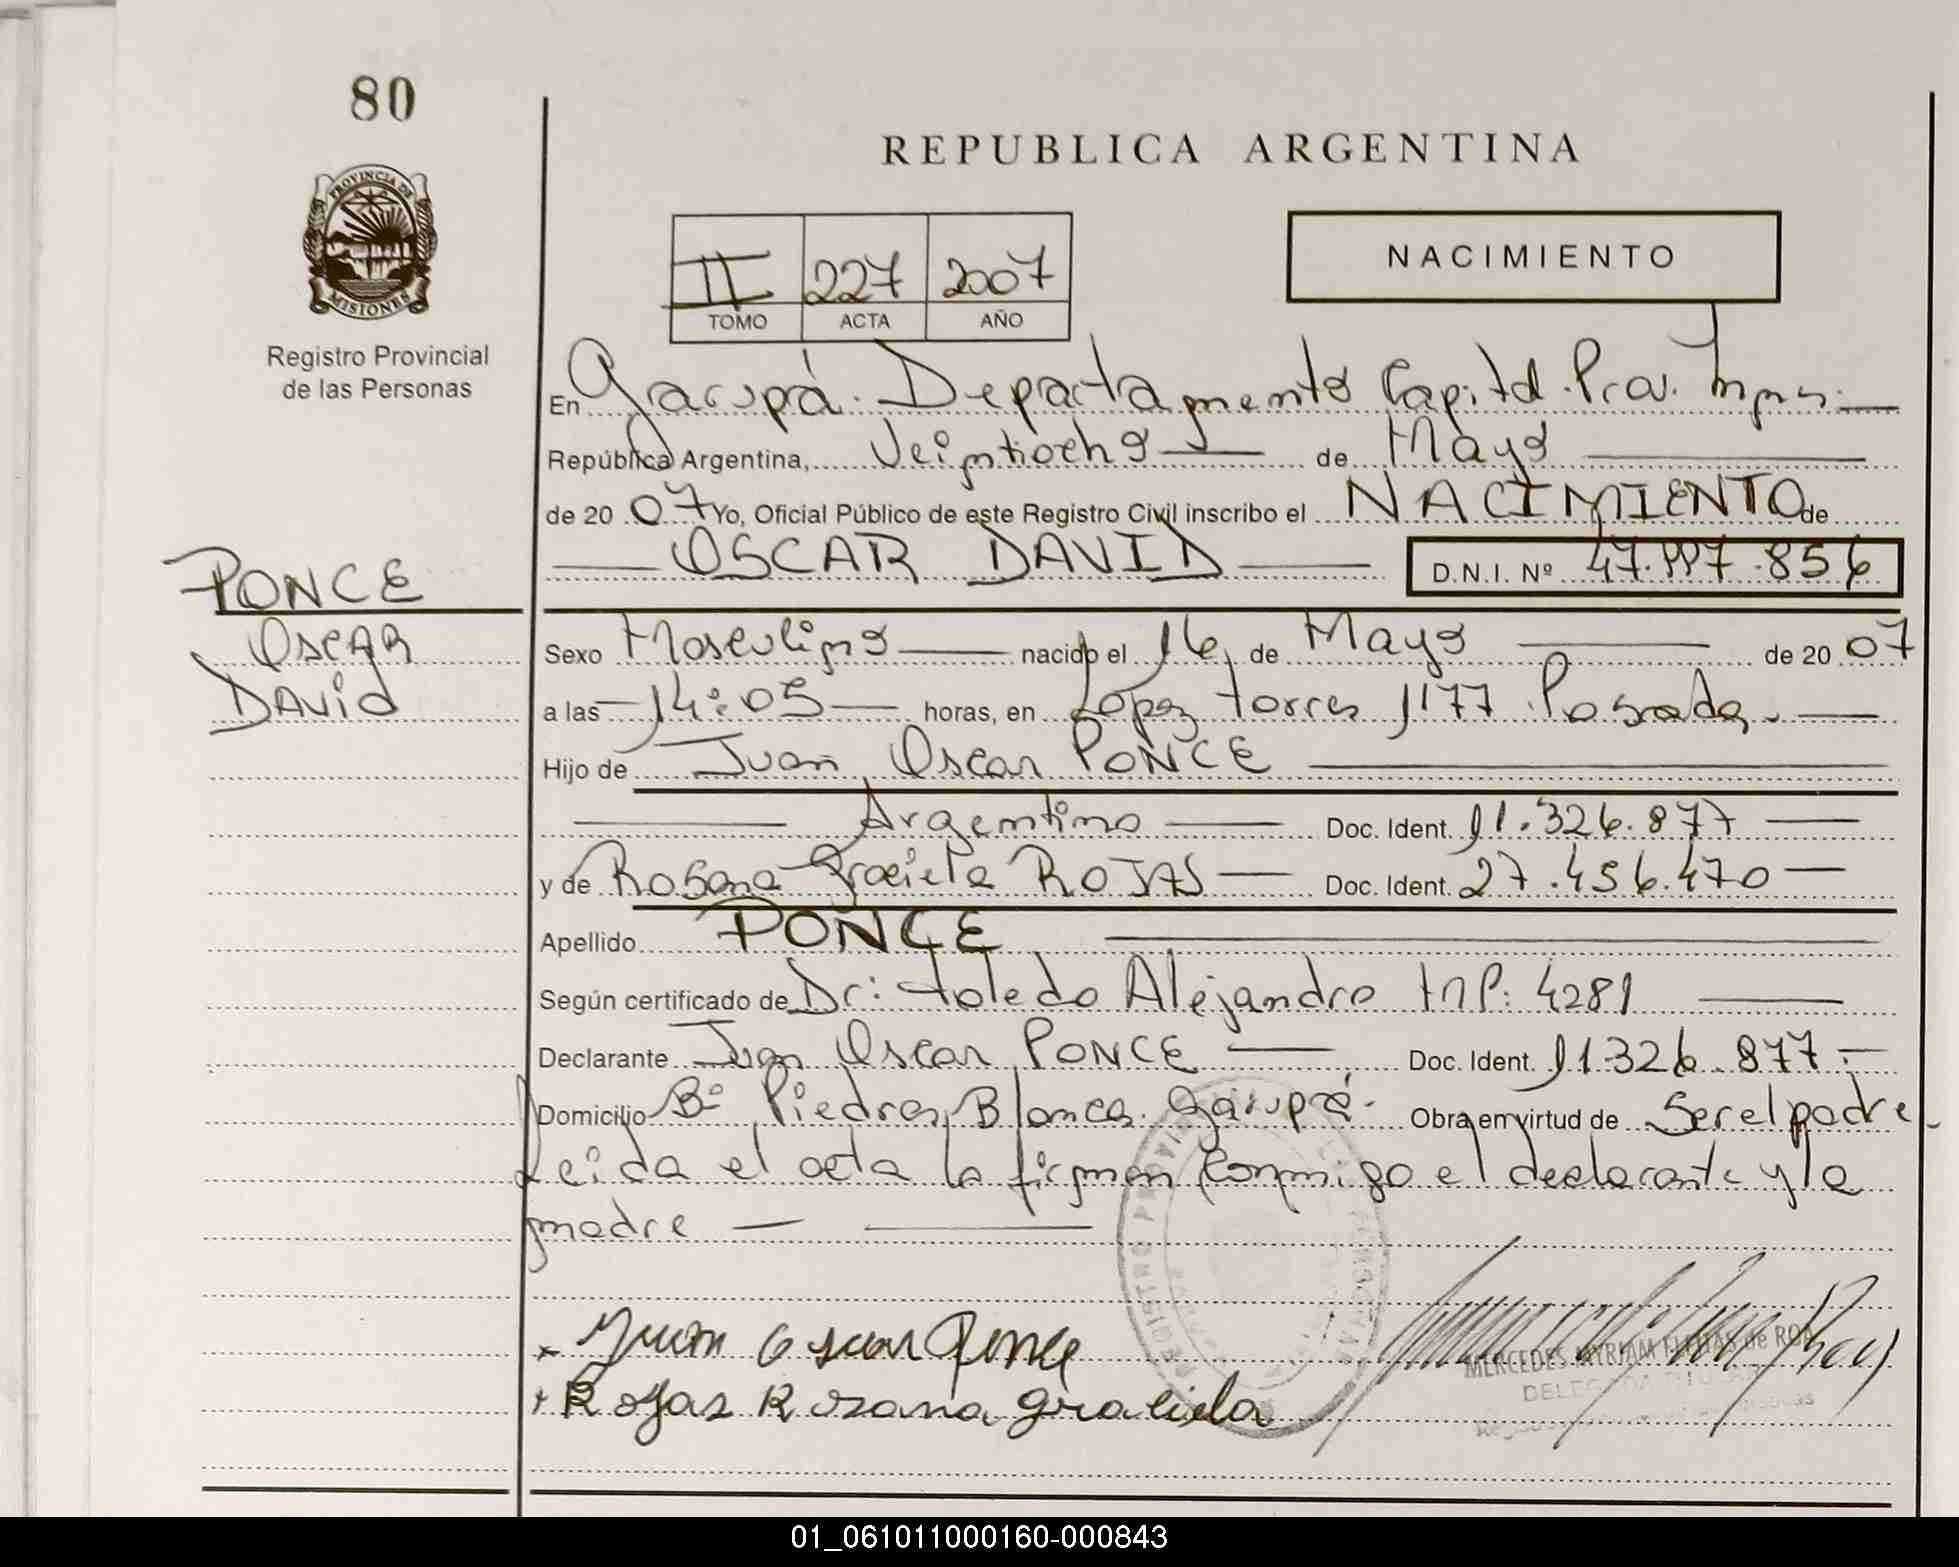 80
REPUBLICA ARGENTINA
PROVINCIA DE
MISIONES
Registro Provincial
de las Personas
II 227 2007
TOMO ACTA AÑO
NACIMIENTO
En Garupá. Departamento Capital. Prov. Mnes.
República Argentina, Veintiocho de Mayo
de 20 07 Yo, Oficial Público de este Registro Civil inscribo el NACIMIENTO de
OSCAR DAVID D.N.I. Nº 47.997.856
PONCE
Oscar
David
Sexo Masculino nacido el 16 de Mayo de 20 07
a las 14:05 horas, en Lopez Torres 1177 Posadas
Hijo de Juan Oscar PONCE
Argentino Doc. Ident. 11.326.877
y de Rosana Graciela ROJAS Doc. Ident. 27.456.470
Apellido PONCE
Según certificado de Dr: Toledo Alejandro MP: 4281
Declarante Juan Oscar PONCE Doc. Ident. 11.326.877
Domicilio Bº Piedras Blancas. Garupá. Obra en virtud de Ser el padre
Leida el acta la firman conmigo el declarante y la
madre
Juan Oscar Ponce
Rojas Rozana graciela
MERCEDES MYRIAM FLEITAS de ROA
DELEGADA TITULAR
01_061011000160-000843